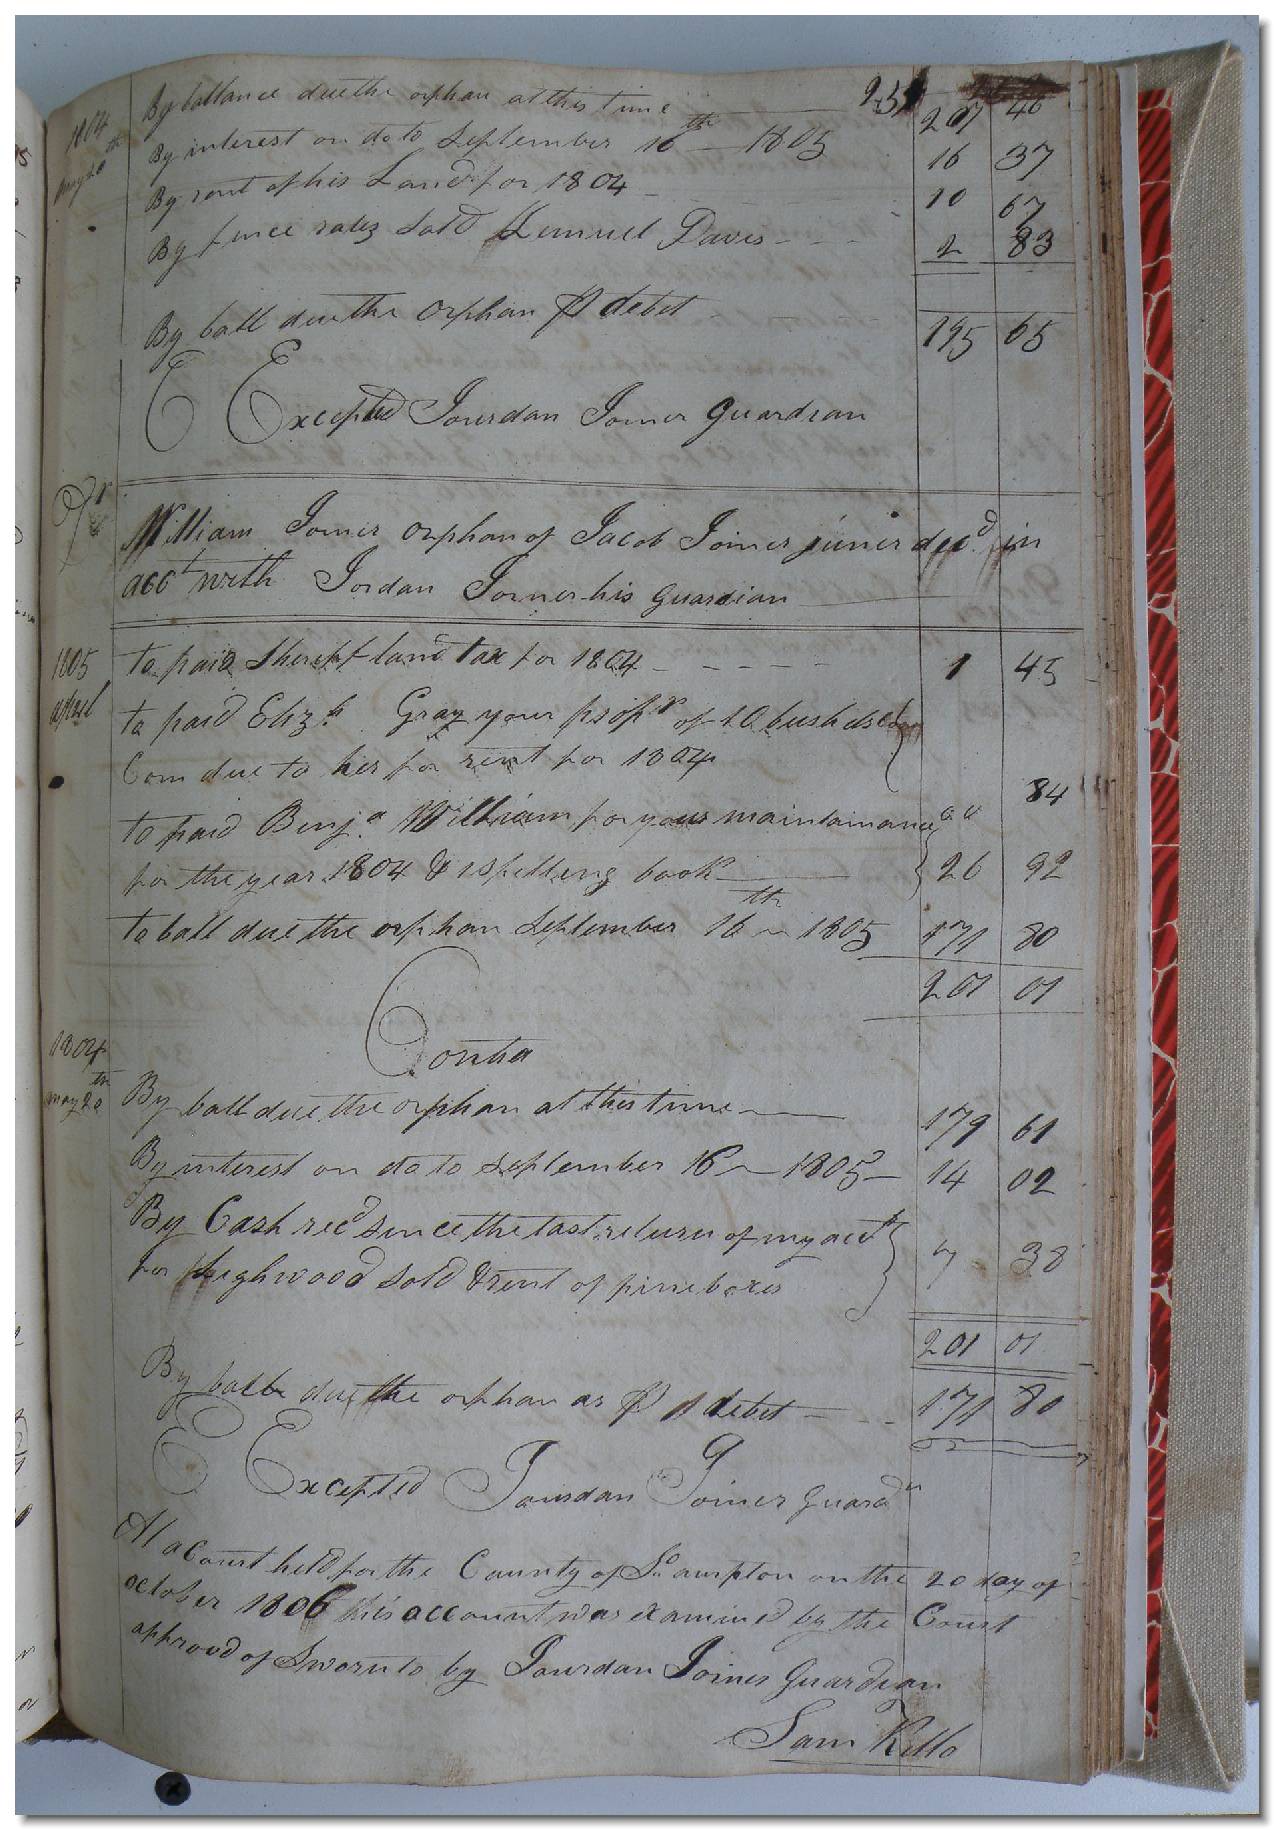 1804 By ballance due the orphan at this time 207 46
may 20th By interest on do to September 16th 1805 16 37
By rent of his Land for 1804 10 67
By fence rales sold Lemuel Davis 2 83
By ball due the orphan P debet 195 65
E Excepted Jourdan Joiner guardian
Dr
William Joiner orphan of Jacob Joiner juner decd in
acct with Jordan Joiner his guardian
1805 to paid Sheriff land tax for 1804 1 45
april to paid Elizh Gray your propr of 10 bushels
Corn due to her for rent for 1804 84
to paid Benja William for your maintainance
for the year 1804 & 1 spelling book 26 92
to ball due the orphan September 16th 1805 171 80
201 01
Contra
1804
may 20th By ball due the orphan at this time 179 61
By interest on do to September 16 1805 14 02
By Cash recd since the last return of my acct
for Lighwood sold & rent of pine boxes 7 38
201 01
By ball due the orphan as P debet 171 80
E Excepted Jourdan Joiner guardn
At a Court held for the County of So ampton on the 20 day of
october 1806 this account was examined by the Court
approvd of Sworn to by Jourdan Joiner Guardian
Sam Kello